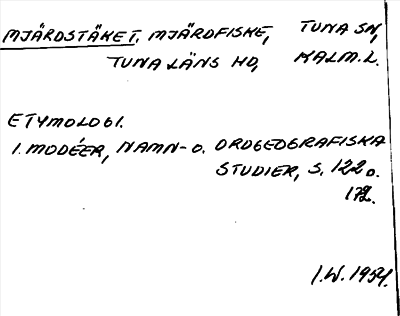 MJÄRDSTÄKET. MJÄRDFISKE, TUNA SN,
TUNA LÄNS HD, KALM. L.
ETYMOLOGI.
I. MODÉER, NAMN- O. ORDGEOGRAFISKA
STUDIER, S. 122 O.
172.
I.W. 1954.